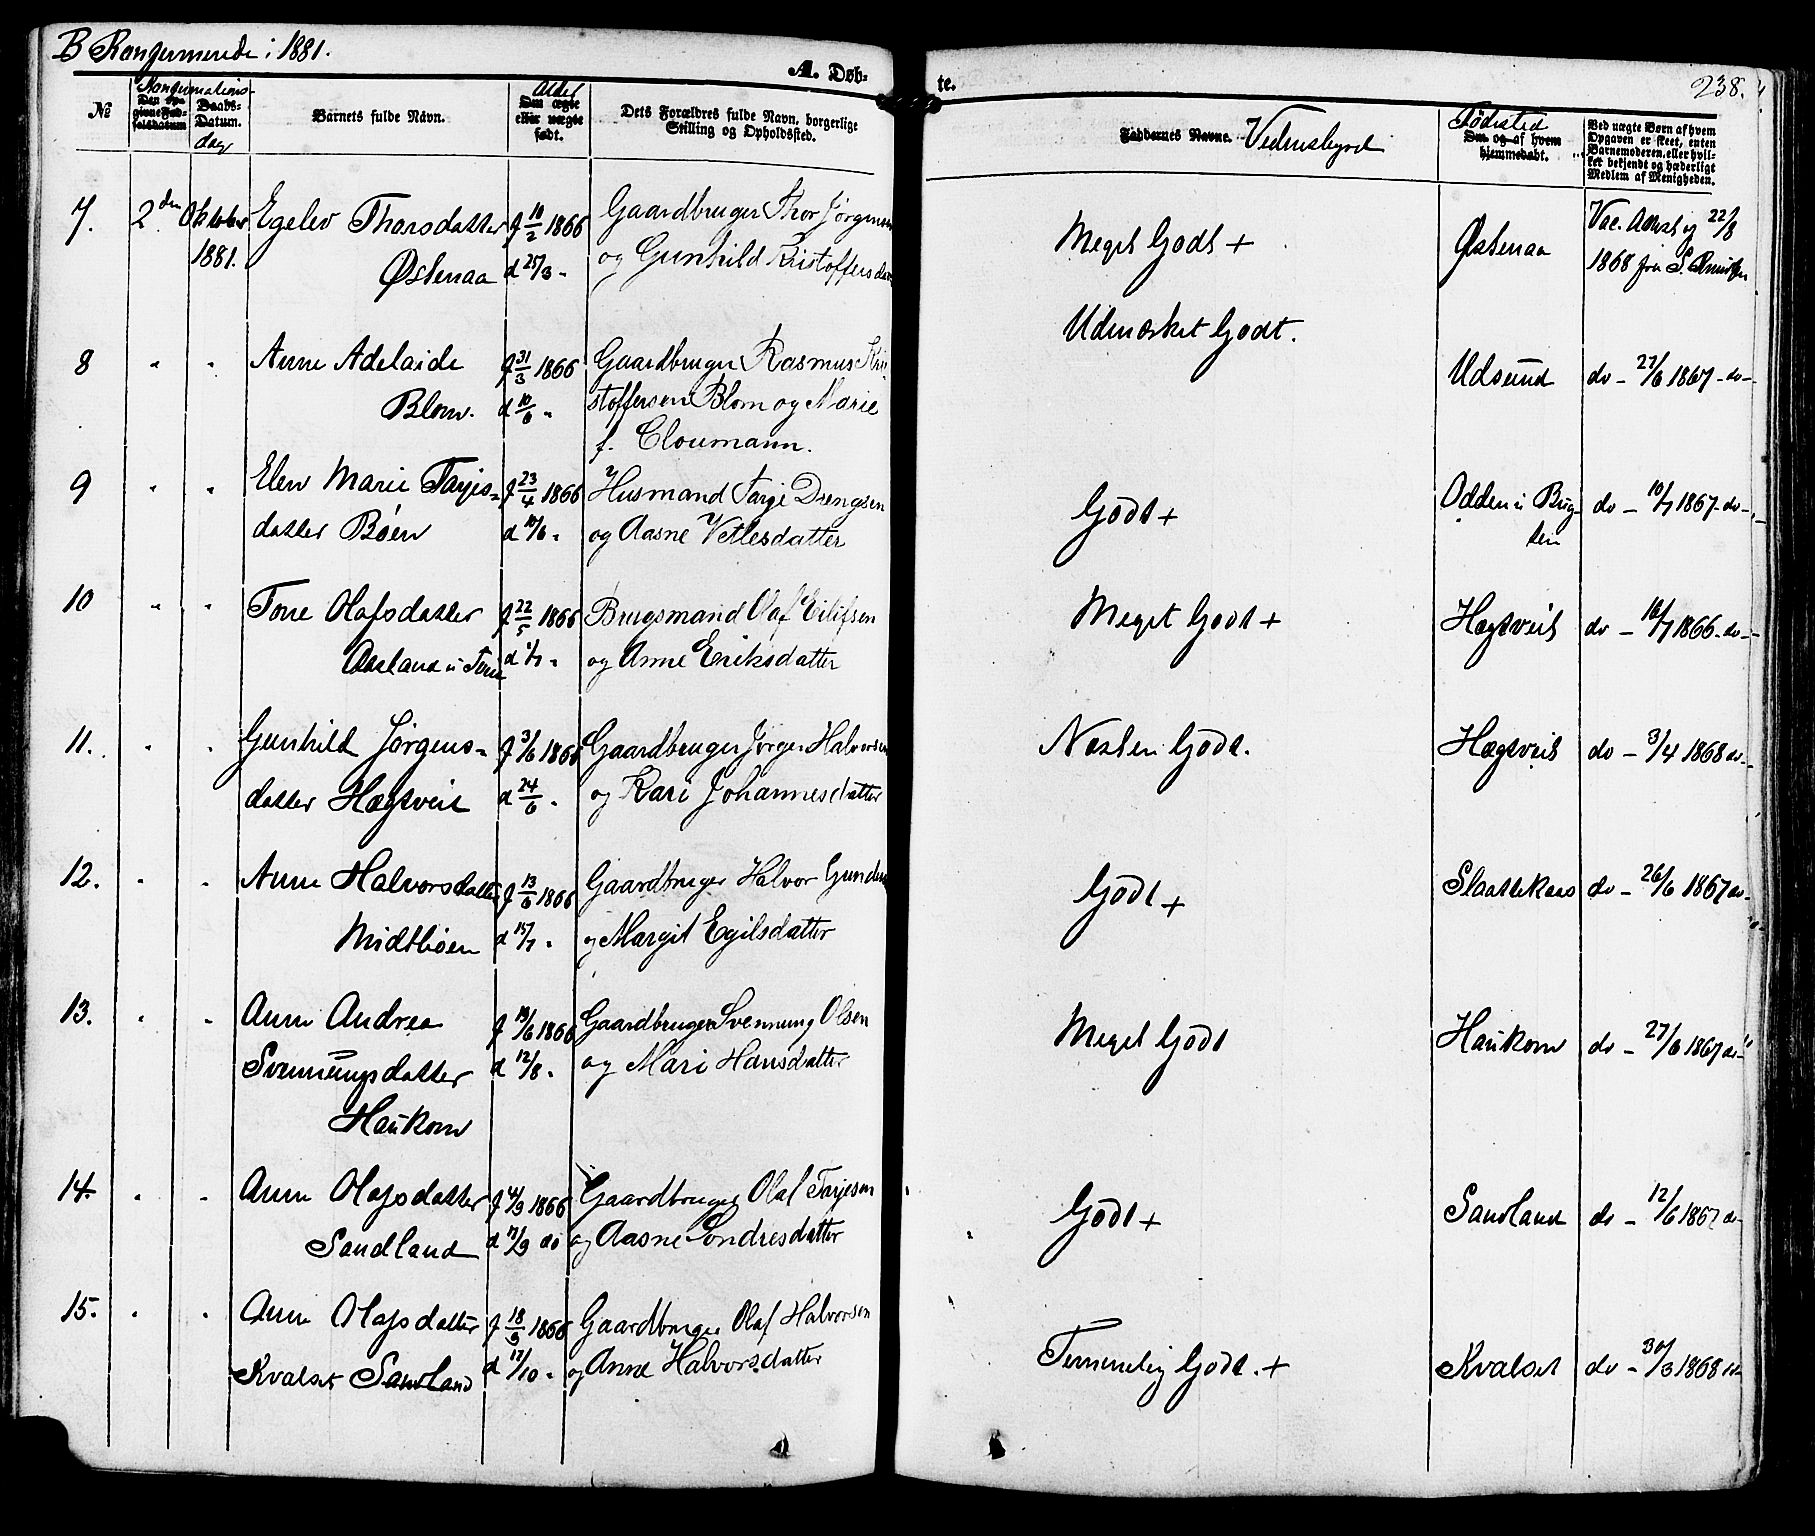 B Konfirmerede i 1881.
A. Døb-
te.
238.
№
Konfirmations-
Den opgivne Fødselsdatum
Daabs-Datum.
dag
Barnets fulde Navn.
Alder
Om ægte eller uægte født.
Dets Forældres fulde Navn, borgerlige Stilling og Opholdsted.
Faddernes Navne. Vidnesbyrd
Fødested
Om og af hvem hjemmedøbt.
Ved uægte Børn af hvem Opgaven er skeet, enten Barnemoderen, eller hvilket bekjendt og hæderligt Medlem af Menigheden.
7. 2den Oktober Egelev Thorsdatter f 10/2 1866 Gaardbruger Thor Jørgensen Meget Godt + Østenaa Vac. Attest af 22/8
1881. Østenaa d 25/3 - og Gunhild Kristoffersdatter 1868 fra
8 " " Anne Adelaide f 31/3 1866 Gaardbruger Rasmus Kri Udmærket Godt. Udsund do - 27/6 1867 - do -
Blom. d 10/6 " stoffersen Blom og Marie
f. Cloumann.
9 " " Elen Marie Tarjes- f 23/4 1866 Husmand Tarje Drengsen Godt + Odden u Byg- do - 10/7 1867 - do -
datter Böen d 10/6 " og Aasne Vetlesdatter
10 " " Tone Olafsdatter f 22/5 1866 Brugsmand Olaf Eilifsen Meget Godt + Hægtveit do - 16/7 1866 - do -
Aasland u d 1/7 " og Anne Eriksdatter
11. " " Gunhild Jørgens- f 3/6 1866 Gaardbruger Jørgen Halvorsen Næsten Godt. Hægtveit do - 3/4 1868 do -
datter Hægtveit d 24/6 " og Kari Johannesdatter
12. " " Anne Halvorsdatter f 13/6 1866 Gaardbruger Halvor Gunders Godt + Slaattekaas do - 26/6 1867 do -
Midtböen d 15/7 " og Margit Egilsdatter
13. " " Anne Andrea f 19/6 1866 Gaardbruger Svennung Olsen Meget Godt Haukom do - 27/6 1867 do -
Svennungsdatter d 12/8 " og Mari Hansdatter
Haukom
14. " " Anne Olafsdatter f 4/9 1866 Gaardbruger Olaf Tarjesen Godt + Sandland do - 12/6 1867 do -
Sandland d 17/9 do og Aasne Sondresdatter
15. " " Anne Olafsdatter f 18/9 1866 Gaardbruger Olaf Halvorsen Temmelig Godt. + Kvalset do - 30/3 1868 do -
Kvalset Sandland d 17/10 - og Anne Halvorsdatter